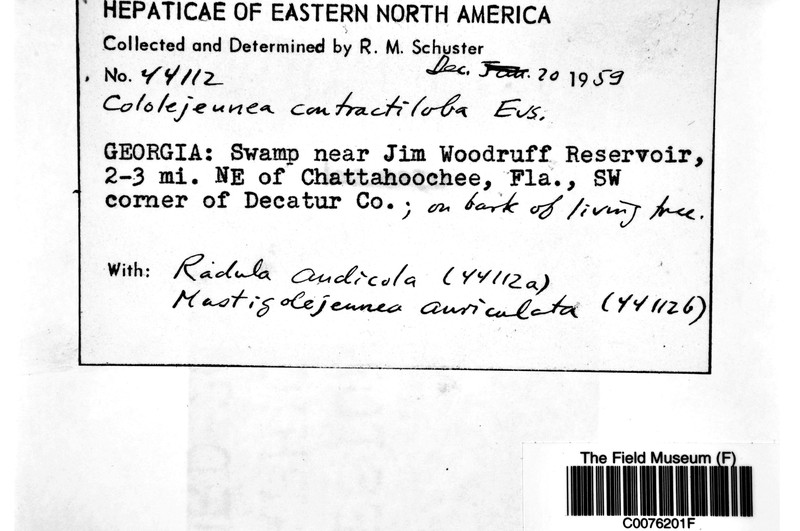 HEPATICAE OF EASTERN NORTH AMERICA
Collected and Determined by R. M. Schuster
No. 44112 Dec. Jan. 20 1959
Cololejeunea contractiloba Evs.
GEORGIA: Swamp near Jim Woodruff Reservoir,
2-3 mi. NE of Chattahoochee, Fla., SW
corner of Decatur Co.; on bark of living tree.
With: Radula andicola (44112a)
Mastigolejeunea auriculata (44112b)
The Field Museum (F)
C0076201F